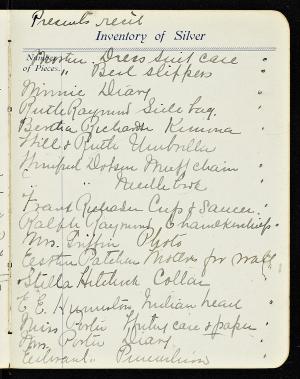 Presents rec'd
Inventory of Silver
Number of Pieces.
Dress suit case "
" Bed slippers "
Minnie Diary "
Ruth Raymond Side bag. "
Bertha Richards Kimona "
Will & Ruth Umbrella "
Winifred Dotson Muff chain "
" " Needle book "
Frank Richards Cup & Saucer "
Ralph Raymond Handkerchiefs "
Mrs. Griffin Photo "
Motto for wall "
Stella Hitchcock Collar "
E. E. Indian head "
Miss Porter case & paper "
Mrs. Porter Diary "